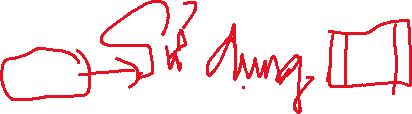 Sử dụng